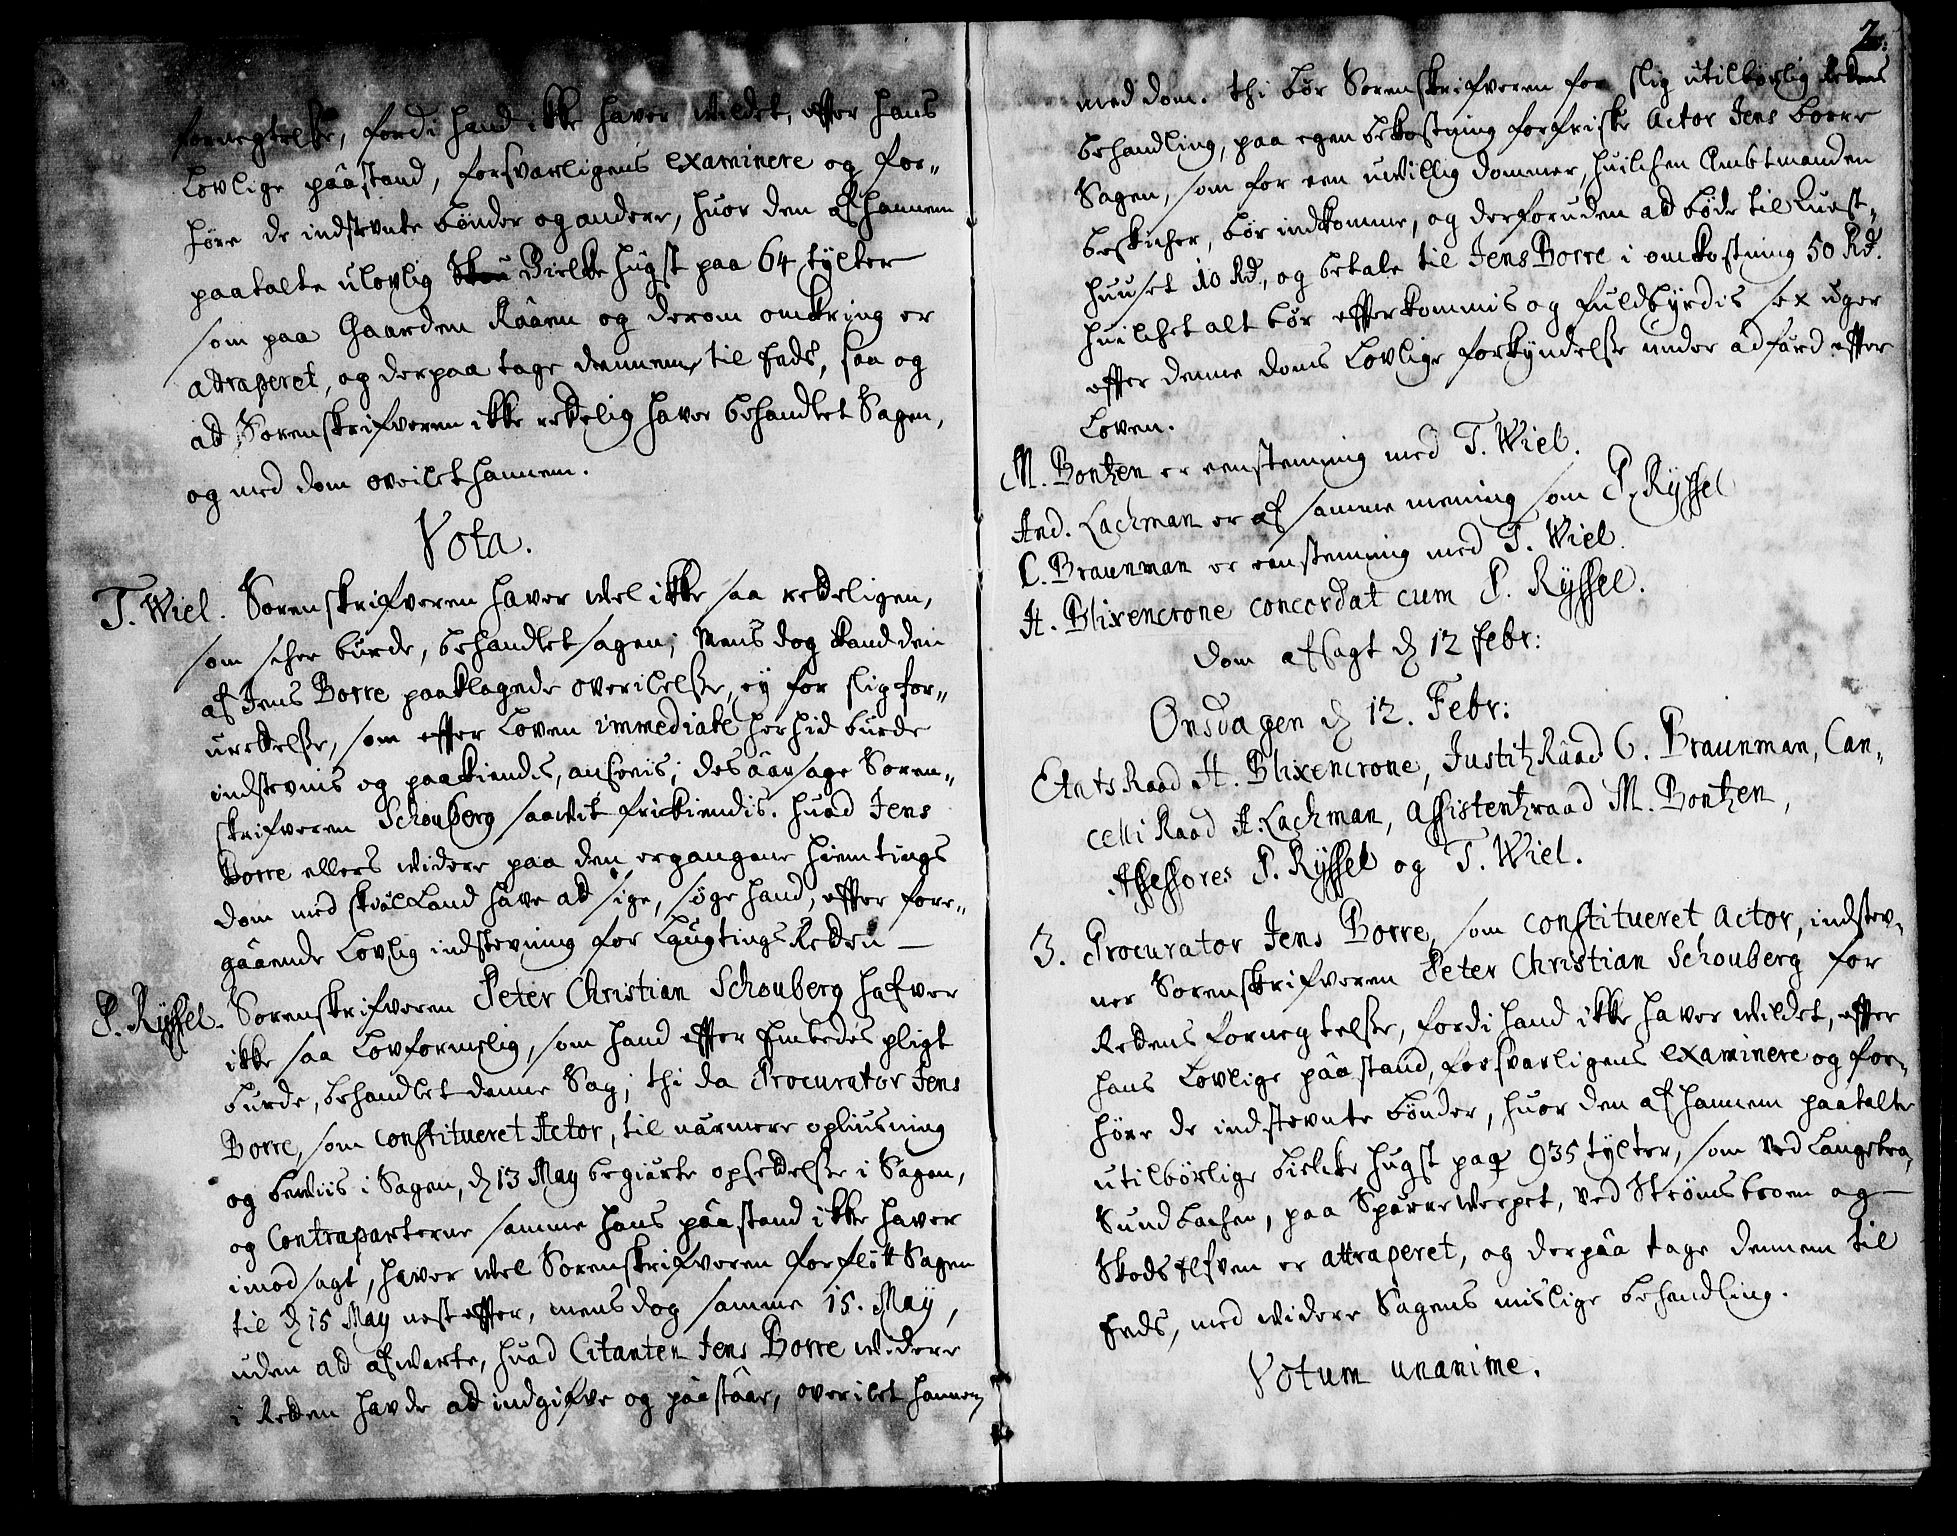 fornegtelse, fordi hand ikke haver wildet, effter hans
Lovlige paastand, forsvarligens examinere og for„
höre de indstevnte bönder og andere, huor den af hannem
paatalte ulovlig Bielke hugst paa 64 tylter
som paa Gaarden Rååen og derom omkring er
attraperet, og derpaa tage dennem til Eeds, saa og
ad Sorenskrifveren ikke redelig haver behandlet Sagen,
og med dom overilet hannem.
Vota.
T. Wiel. Sorenskrifveren haver wel ikke saa redeligen,
som schee burde, behandlet sagen; Mens dog kand den
af Jens Borre paaklagede overilelse, ey for slig for„
urettelse, som effter Loven immediate herhid burde
indstevnis og paakiendis, ansees; des aarsage Soren„
skrifveren Schouberg saavit frikiendis. huad Jens
Borre ellers widere paa den ergangene hiemtings
dom med skiäl kand have ad sige, söge hand, effter fore„
gaaende Lovlig indstevning for Laugtings Retten —
P. Ryssel. Sorenskrifveren Peter Christian Schouberg hafver
ikke saa Lovformelig, som hand effter Embedes pligt
burde, behandlet denne Sag; thi da Procurator Jens
Borre, som constitueret Actor, til närmere opliusning
og beviis i Sagen, d 13 May begiärte opsettelse i Sagen,
og Contraparterne samme hans paastand ikke haver
imodsagt, haver wel Sorenskrifveren forflött Sagen
til d 15 May nest effter, mens dog samme 15. May,
uden ad afwarte, huad Citanten Jens Borre widere
i Retten havde ad indgifve og paastaae, overilet hannem
2.
med dom. thi bör Sorenskrifveren for slig utilbörlig Rettens
behandling, paa egen bekostning forfriske Actor Jens Borre
Sagen, som for een uwillig dommer, huilchen Ambtmanden
beskicher, bör indkomme, og derforuden ad böde til Quest„
huuset 10 Rd., og betale til Jens Borre i omkostning 50 Rd.
huilchet alt bör effterkommis og fuldbyrdis sex uger
effter denne doms Lovlige forkyndelse under adfärd effter
Loven.
M. Bontzen er eenstemmig med T. Wiel.
And. Lachman er af samme mening som P. Ryssel
C. Braunman er eenstemmig med T. Wiel.
A. Blixencrone concordat cum P. Ryssel.
Dom afsagt d 12 Febr:
Onsdagen d 12. Febr:
Etats Raad A. Blixencrone, Justitz Raad C. Braunman, Can„
celli Raad A. Lachman, Assistentzraad M. Bontzen,
Assessores P. Ryssel og T. Wiel.
3. Procurator Jens Borre, som constitueret Actor, indstev„
ner Sorenskrifveren Peter Christian Schouberg for
Rettens fornegtelse, fordi hand ikke haver wildet, effter
hans Lovlige paastand, forsvarligens examinere og for„
höre de indstevnte bönder, huor den af hannem paatalte
utilbörlige bielcke hugst paa 935 tylter, som ved Langebroe,
Sund bachen, paa Sparre Werpet, ved Strömsbroen og
Skods Elfven er attraperet, og derpaa tage dennem til
Eeds, med widere Sagens mislige behandling.
Votum unanime.